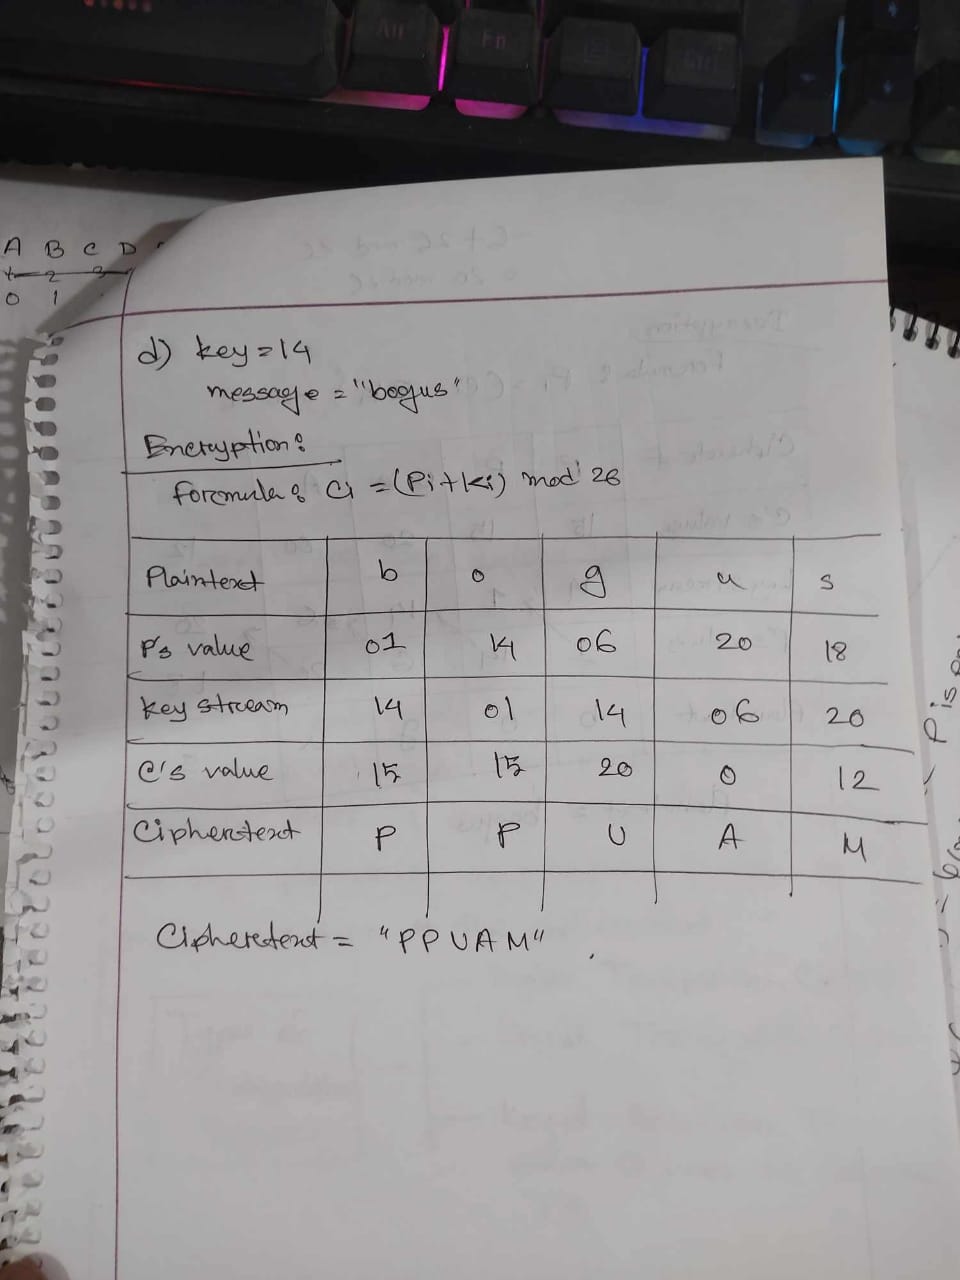 Alt Fn Ctrl
A B C D
1 2 3
0 1
d) key = 14
message = "bogus"
Encryption:
formula: Ci = (Pi + ki) mod 26
Plaintext b o g u s
P's value 01 14 06 20 18
key stream 14 01 14 06 20
C's value 15 15 20 0 12
Ciphertext P P U A M
Ciphertext = "PPUAM".
P is